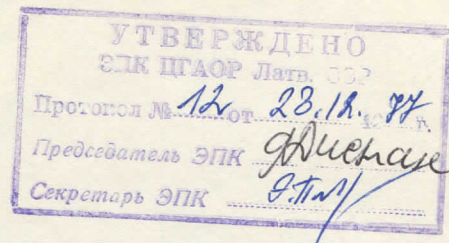 УТВЕРЖДЕНО
ЭПК ЦГАОР Латв. ССР
Протокол № 12 от 28.12. 1977 г.
Председатель ЭПК
Секретарь ЭПК